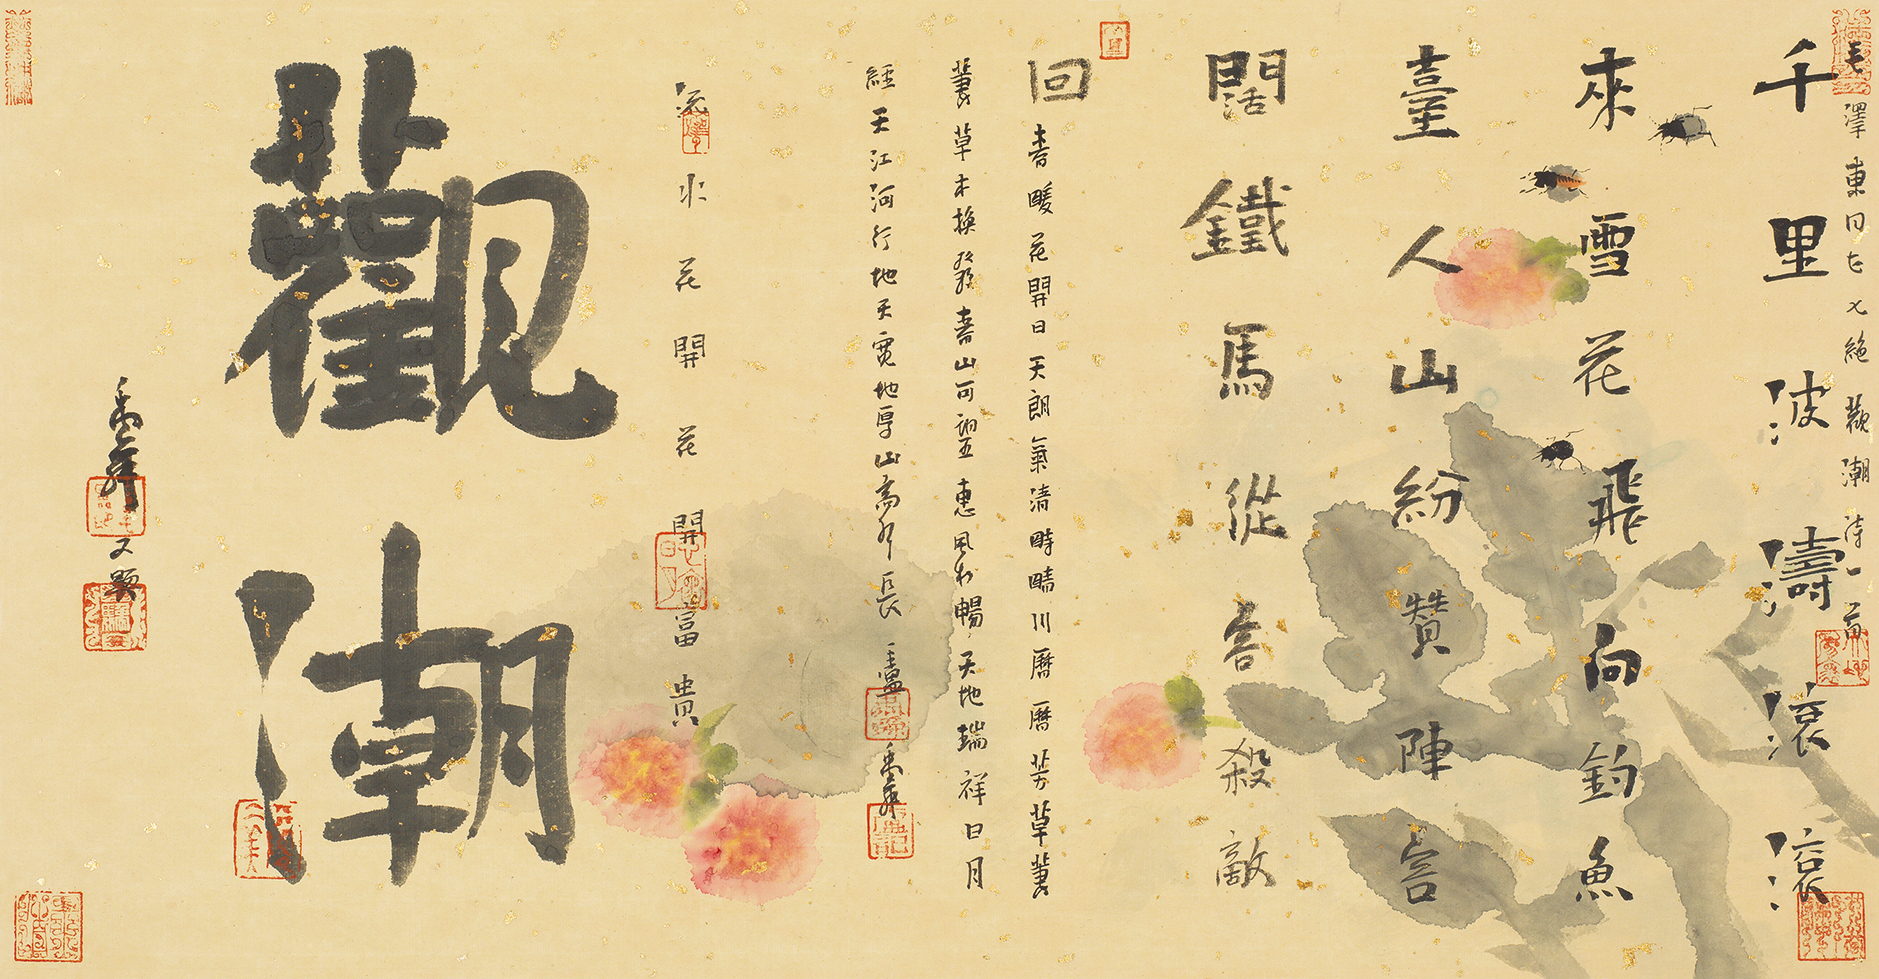 毛澤東同志七絕觀潮詩一首
千里波濤滾滾
來雪花飛向釣魚
臺人山紛贊陣容
闊鐵馬從容殺敵
回春暖花開日天朗氣清時晴川曆曆芳草萋
萋草木換發春山可望惠風和暢天地瑞祥日月
經天江河行地天寬地厚山高水長盧禹舜
流水花開花開富貴
觀潮
禹舜又題